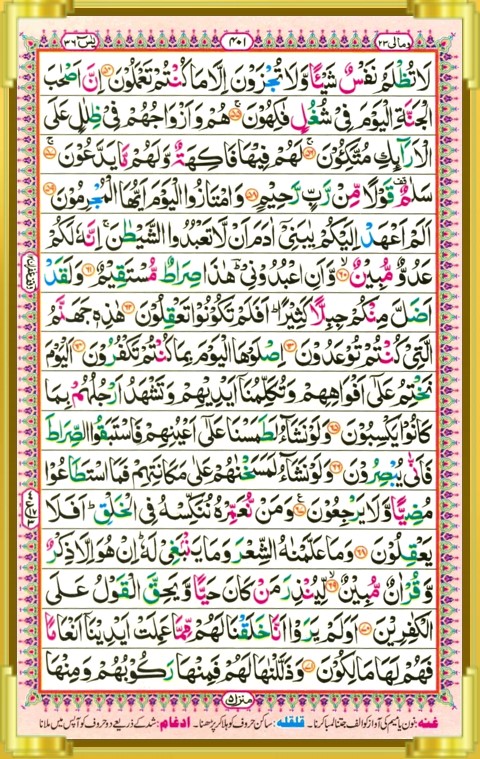 ومالی ٢٣
٤٠١
یٰسٓ ٣٦
لَا تُظْلَمُ نَفْسٌ شَيْـًٔا وَّلَا تُجْزَوْنَ اِلَّا مَا كُنْتُمْ تَعْمَلُوْنَ ۝٥٤ اِنَّ اَصْحٰبَ
الْجَنَّةِ الْيَوْمَ فِيْ شُغُلٍ فٰكِهُوْنَ ۝٥٥ هُمْ وَاَزْوَاجُهُمْ فِيْ ظِلٰلٍ عَلَى
الْاَرَآىِٕكِ مُتَّكِـُٔوْنَ ۝٥٦ لَهُمْ فِيْهَا فَاكِهَةٌ وَّلَهُمْ مَّا يَدَّعُوْنَ ۝٥٧
سَلٰمٌ ۣ قَوْلًا مِّنْ رَّبٍّ رَّحِيْمٍ ۝٥٨ وَامْتَازُوا الْيَوْمَ اَيُّهَا الْمُجْرِمُوْنَ ۝٥٩
اَلَمْ اَعْهَدْ اِلَيْكُمْ يٰبَنِيْٓ اٰدَمَ اَنْ لَّا تَعْبُدُوا الشَّيْطٰنَ ۚ اِنَّهٗ لَكُمْ
عَدُوٌّ مُّبِيْنٌ ۝٦٠ وَّاَنِ اعْبُدُوْنِيْ ؔ هٰذَا صِرَاطٌ مُّسْتَقِيْمٌ ۝٦١ وَلَقَدْ
اَضَلَّ مِنْكُمْ جِبِلًّا كَثِيْرًا ؕ اَفَلَمْ تَكُوْنُوْا تَعْقِلُوْنَ ۝٦٢ هٰذِهٖ جَهَنَّمُ
الَّتِيْ كُنْتُمْ تُوْعَدُوْنَ ۝٦٣ اِصْلَوْهَا الْيَوْمَ بِمَا كُنْتُمْ تَكْفُرُوْنَ ۝٦٤ اَلْيَوْمَ
نَخْتِمُ عَلٰٓى اَفْوَاهِهِمْ وَتُكَلِّمُنَآ اَيْدِيْهِمْ وَتَشْهَدُ اَرْجُلُهُمْ بِمَا
كَانُوْا يَكْسِبُوْنَ ۝٦٥ وَلَوْ نَشَآءُ لَطَمَسْنَا عَلٰٓى اَعْيُنِهِمْ فَاسْتَبَقُوا الصِّرَاطَ
فَاَنّٰى يُبْصِرُوْنَ ۝٦٦ وَلَوْ نَشَآءُ لَمَسَخْنٰهُمْ عَلٰى مَكَانَتِهِمْ فَمَا اسْتَطَاعُوْا
مُضِيًّا وَّلَا يَرْجِعُوْنَ ۝٦٧ وَمَنْ نُّعَمِّرْهُ نُنَكِّسْهُ فِي الْخَلْقِ ؕ اَفَلَا
يَعْقِلُوْنَ ۝٦٨ وَمَا عَلَّمْنٰهُ الشِّعْرَ وَمَا يَنْۢبَغِيْ لَهٗ ؕ اِنْ هُوَ اِلَّا ذِكْرٌ
وَّقُرْاٰنٌ مُّبِيْنٌ ۝٦٩ لِّيُنْذِرَ مَنْ كَانَ حَيًّا وَّيَحِقَّ الْقَوْلُ عَلَى
الْكٰفِرِيْنَ ۝٧٠ اَوَلَمْ يَرَوْا اَنَّا خَلَقْنَا لَهُمْ مِّمَّا عَمِلَتْ اَيْدِيْنَآ اَنْعَامًا
فَهُمْ لَهَا مٰلِكُوْنَ ۝٧١ وَذَلَّلْنٰهَا لَهُمْ فَمِنْهَا رَكُوْبُهُمْ وَمِنْهَا
منزل ٥
غنہ: نون یا میم کی آواز کو الف جتنا لمبا کرنا۔ قلقلہ: ساکن حروف کو ہلا کر پڑھنا۔ ادغام: شد کے ذریعے دو حروف کو آپس میں ملانا